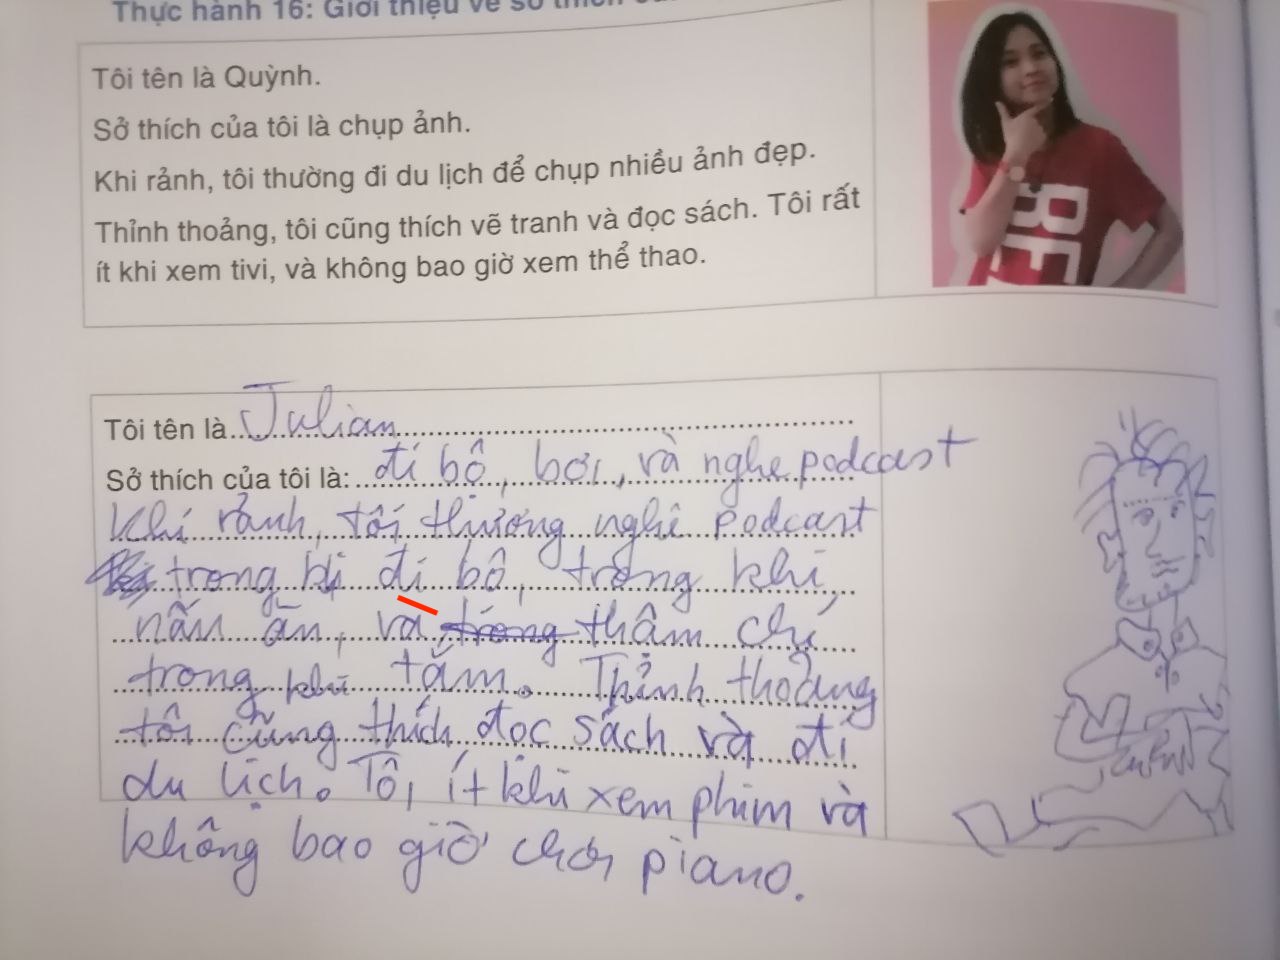 Thực hành 16: Giới thiệu về sở thích
Tôi tên là Quỳnh.
Sở thích của tôi là chụp ảnh.
Khi rảnh, tôi thường đi du lịch để chụp nhiều ảnh đẹp.
Thỉnh thoảng, tôi cũng thích vẽ tranh và đọc sách. Tôi rất
ít khi xem tivi, và không bao giờ xem thể thao.
Tôi tên là Julian
Sở thích của tôi là: đi bộ, bơi, và nghe podcast
Khi rảnh, tôi thương nghê podcast
trong đi bộ, trong khi
nấu ăn, và thâm chí
trong khi tắm. Thỉnh thoảng
tôi cũng thích đọc sách và đi
du lịch. Tôi ít khi xem phim và
không bao giờ chơi piano.